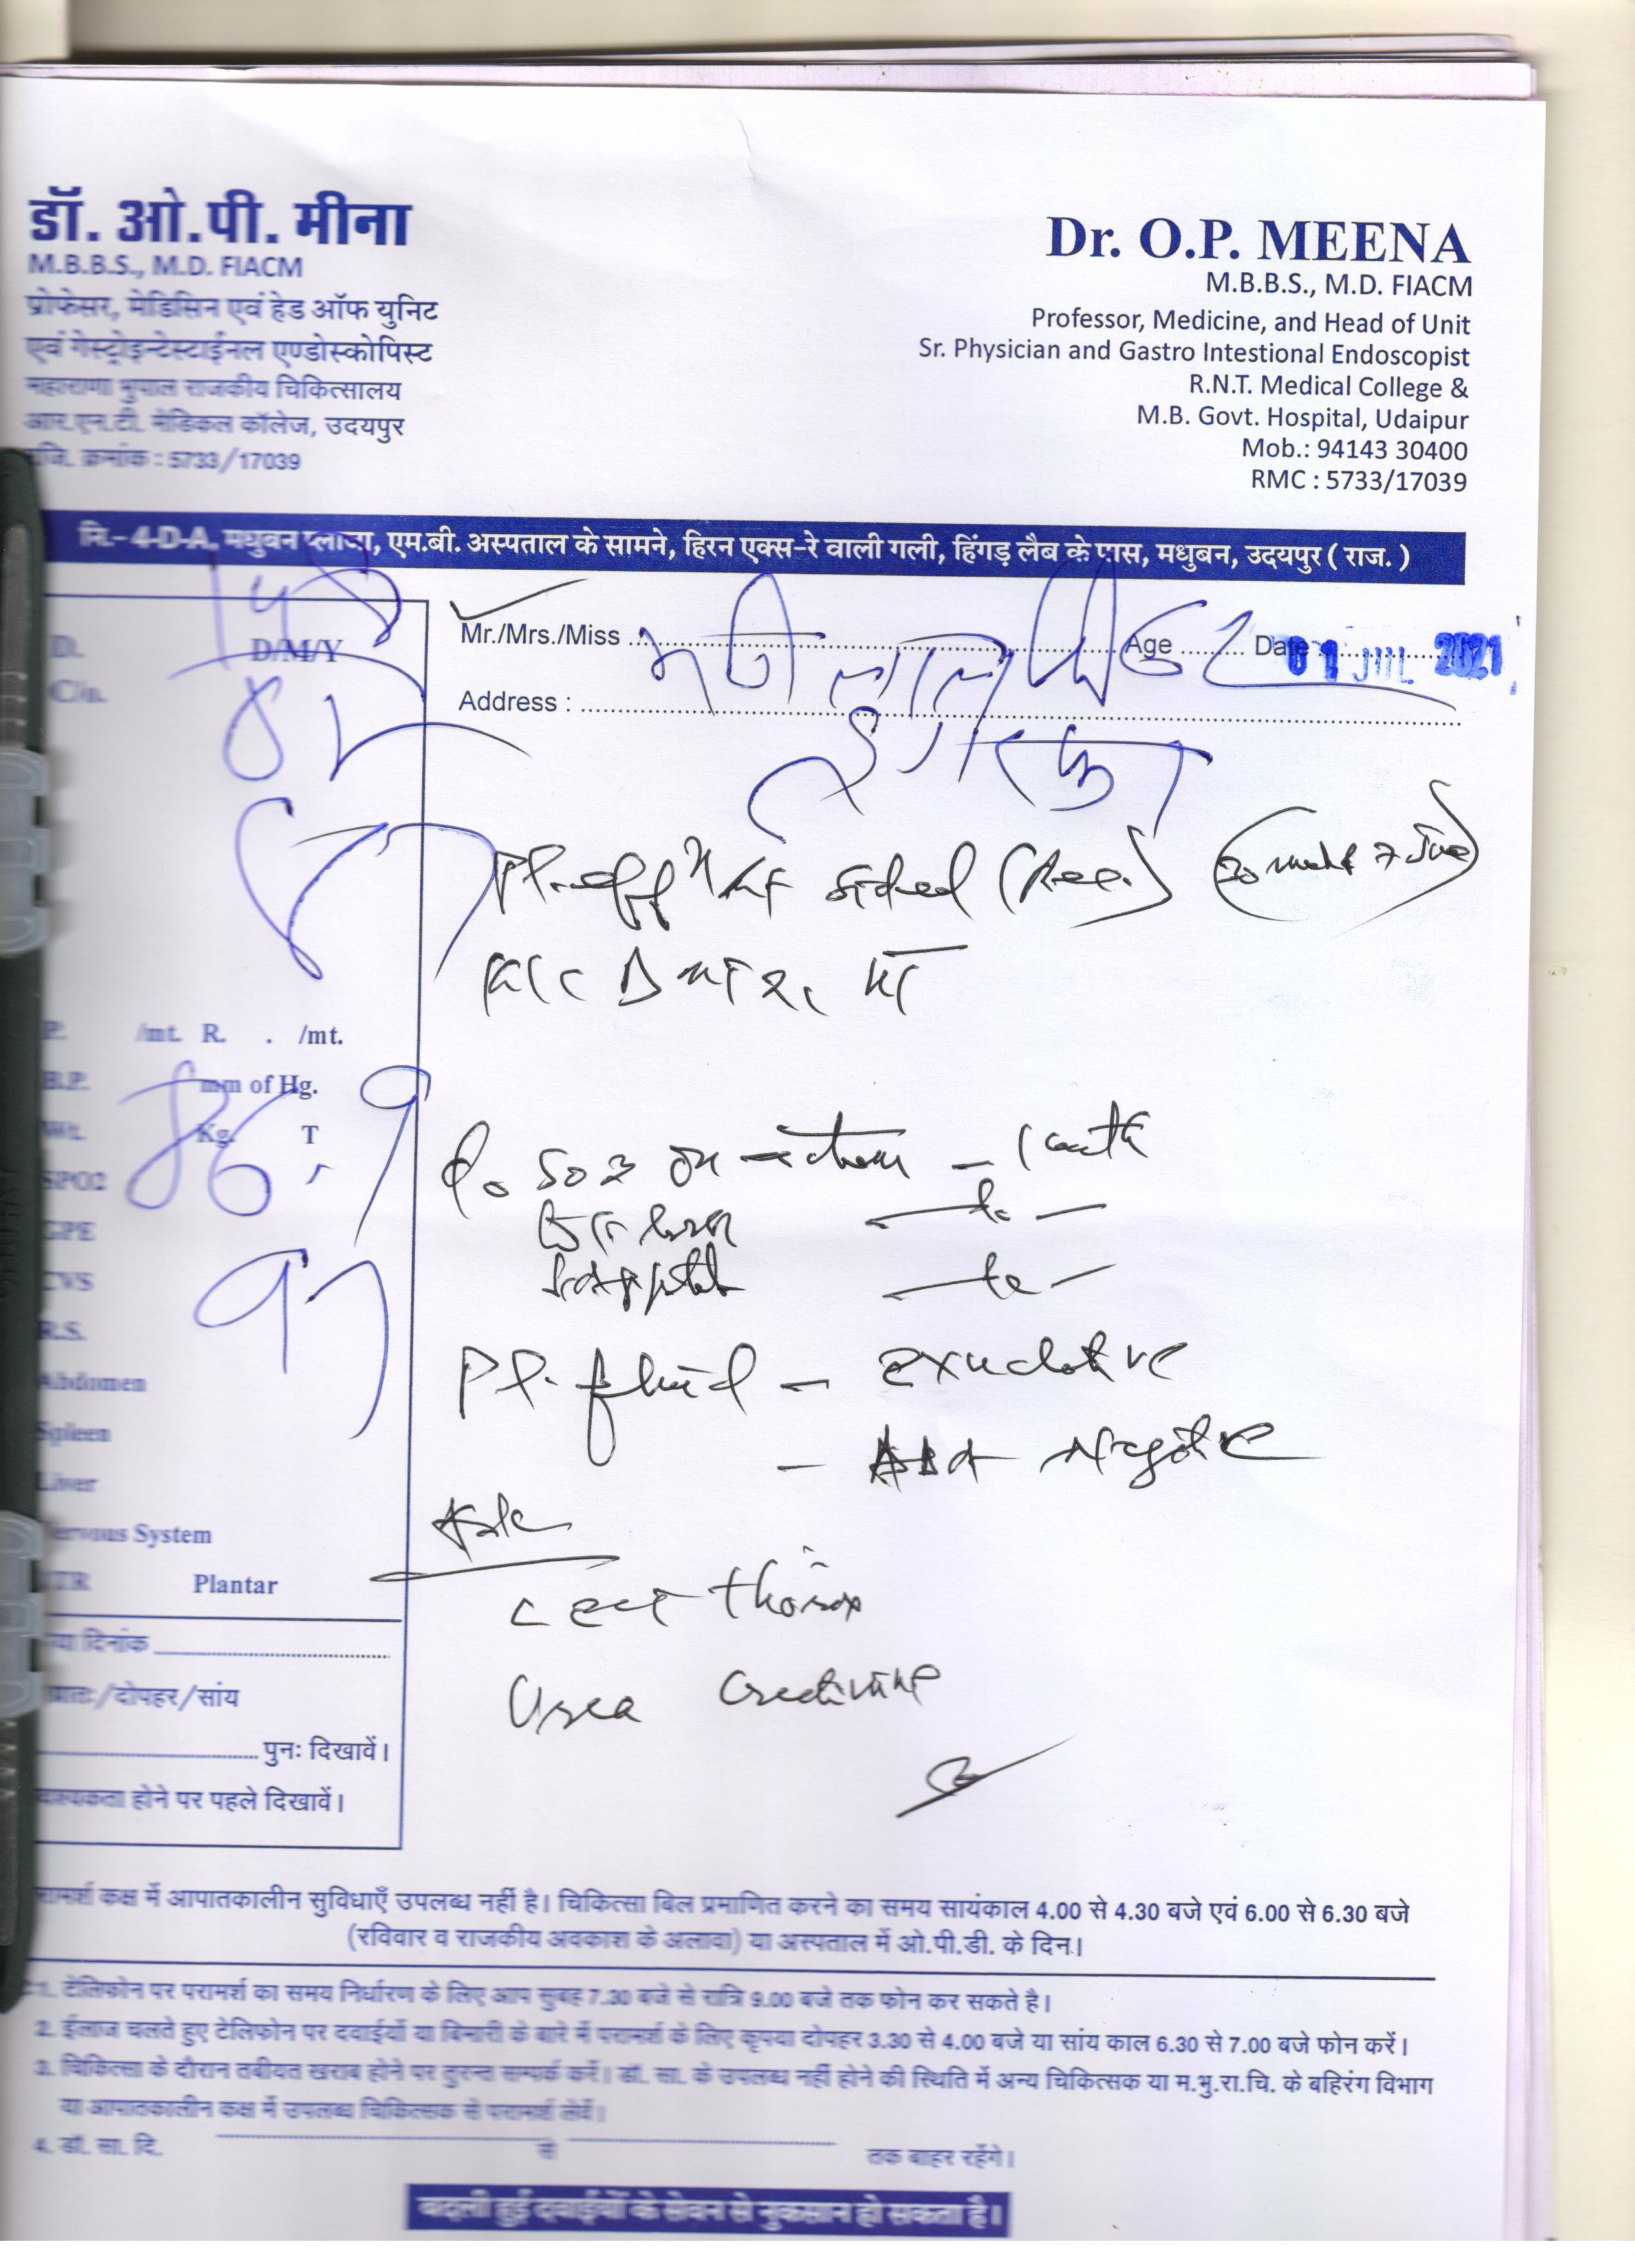 डॉ. ओ.पी. मीना
M.B.B.S., M.D. FIACM
प्रोफेसर, मेडिसिन एवं हेड ऑफ युनिट
एवं गेस्ट्रोइन्टेस्टाईनल एण्डोस्कोपिस्ट
महाराणा भुपाल राजकीय चिकित्सालय
आर.एन.टी. मेडिकल कॉलेज, उदयपुर
रजि. क्रमांक : 5733/17039
Dr. O.P. MEENA
M.B.B.S., M.D. FIACM
Professor, Medicine, and Head of Unit
Sr. Physician and Gastro Intestional Endoscopist
R.N.T. Medical College &
M.B. Govt. Hospital, Udaipur
Mob.: 94143 30400
RMC : 5733/17039
नि.- 4-D-A, मधुबन प्लाजा, एम.बी. अस्पताल के सामने, हिरन एक्स-रे वाली गली, हिंगड़ लैब के पास, मधुबन, उदयपुर ( राज. )
Mr./Mrs./Miss Age 62 Date 01 JUL 2021
Address :
D. D/M/Y
C/o.
82
P. /mt. R. . /mt.
B.P. mm of Hg.
Wt. Kg. T
86.9
SPO2
97
GPE
CVS
R.S.
Abdomen
Spleen
Liver
Nervous System
DTR Plantar
Pl. eff sided (Rec.)
K/C DM T2,
SOB on
Pl. fluid - exudative
- ADA Negative
Adv
CECT thorax
Urea Creatinine
प्रातः/दोपहर/सांय
पुनः दिखावें।
होने पर पहले दिखावें।
परामर्श कक्ष में आपातकालीन सुविधाएँ उपलब्ध नहीं है। चिकित्सा बिल प्रमाणित करने का समय सायंकाल 4.00 से 4.30 बजे एवं 6.00 से 6.30 बजे
(रविवार व राजकीय अवकाश के अलावा) या अस्पताल में ओ.पी.डी. के दिन।
1. टेलिफोन पर परामर्श का समय निर्धारण के लिए आप सुबह 7.30 बजे से रात्रि 9.00 बजे तक फोन कर सकते है।
2. ईलाज चलते हुए टेलिफोन पर दवाईयों या बिमारी के बारे में परामर्श के लिए कृपया दोपहर 3.30 से 4.00 बजे या सांय काल 6.30 से 7.00 बजे फोन करें।
3. चिकित्सा के दौरान तबीयत खराब होने पर तुरन्त सम्पर्क करें। डॉ. सा. के उपलब्ध नहीं होने की स्थिति में अन्य चिकित्सक या म.भु.रा.चि. के बहिरंग विभाग
या आपातकालीन कक्ष में उपलब्ध चिकित्सक से परामर्श लेवें।
4. डॉ. सा. दि. से तक बाहर रहेंगे।
बदली हुई दवाईयों के सेवन से नुकसान हो सकता है।